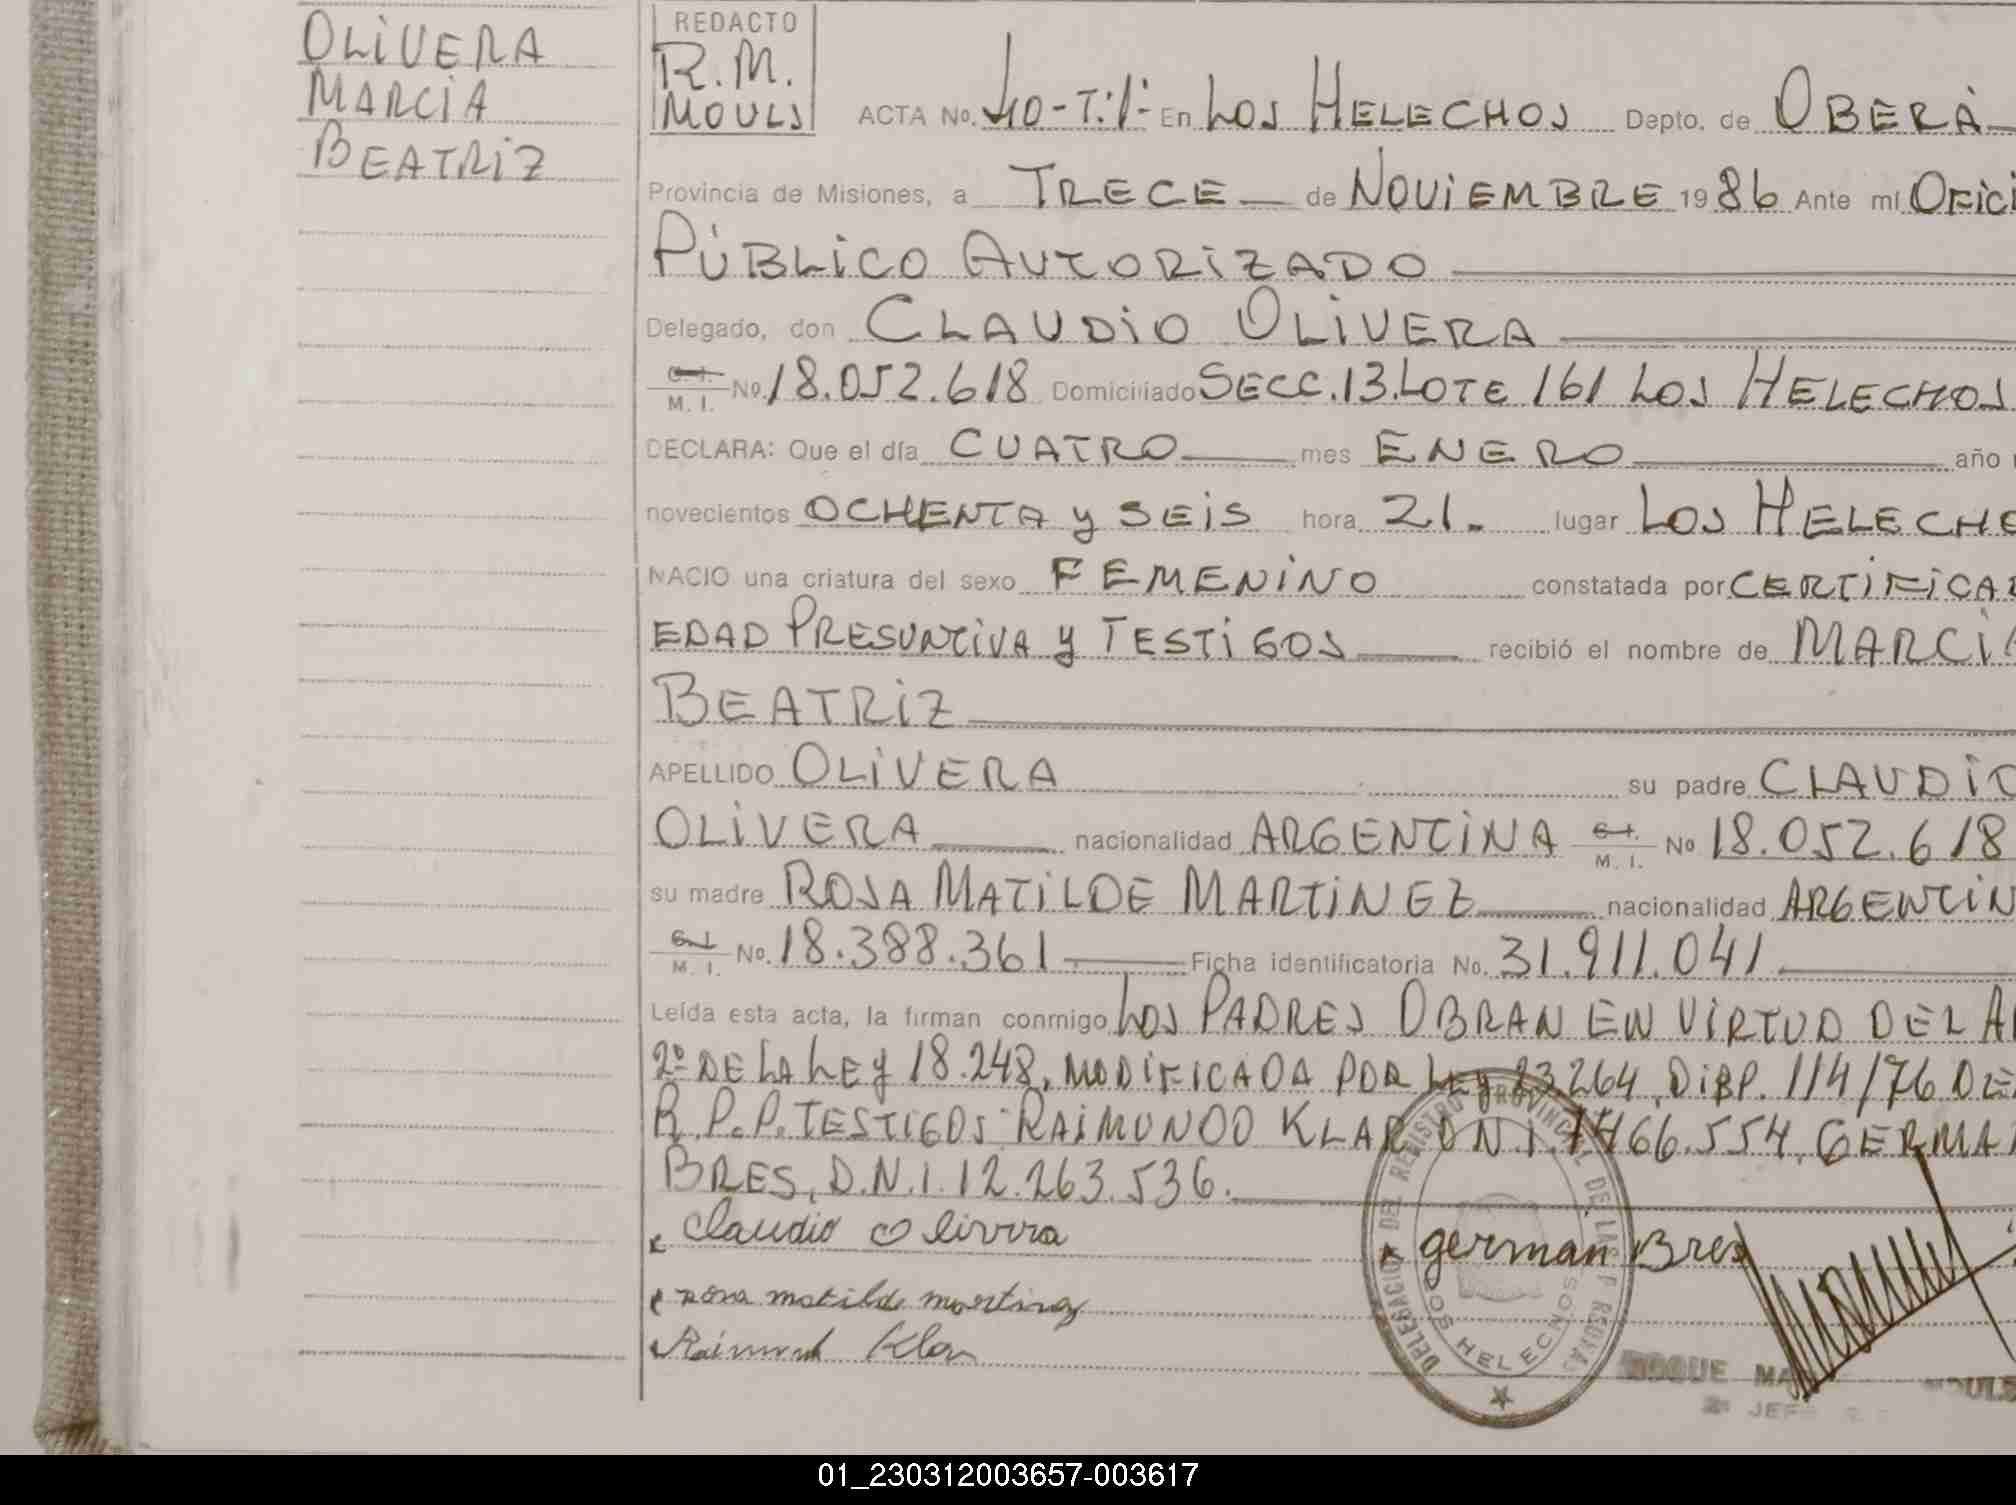 OLIVERA
MARCIA
BEATRIZ
REDACTO
R.M.
MOULS
ACTA No. 40-T:1:- En LOS HELECHOS Depto. de OBERÁ
Provincia de Misiones, a TRECE de NOVIEMBRE 1986 Ante mí OFICI
PÚBLICO AUTORIZADO
Delegado, don CLAUDIO OLIVERA
C. I. M. I. No. 18.052.618 Domiciliado SECC.13.LOTE 161 LOS HELECHOS
DECLARA: Que el día CUATRO mes ENERO año
novecientos OCHENTA y SEIS hora 21. lugar LOS HELECHO
NACIO una criatura del sexo FEMENINO constatada por CERTIFICAD
EDAD PRESUNTIVA y TESTIGOS recibió el nombre de MARCIA
BEATRIZ
APELLIDO OLIVERA su padre CLAUDIO
OLIVERA nacionalidad ARGENTINA C. I. M. I. No 18.052.618
su madre ROSA MATILDE MARTINEZ nacionalidad ARGENTIN
C. I. M. I. No. 18.388.361 Ficha identificatoria No. 31.911.041
Leída esta acta, la firman conmigo LOS PADRES OBRAN EN VIRTUD DEL A
2º DE LA LEY 18.248, MODIFICADA POR LEY 23264, DISP. 114/76 DE
R.P.P. TESTIGOS: RAIMUNDO KLAR D.N.I. 7466.554, GERMAN
BRES, D.N.I. 12.263.536.
Claudio Olivera
german Bres
rosa matilde martinez
Raimund Klar
DELEGACION DEL REGISTRO PROVINCIAL DE LAS PERSONAS
LOS HELECHOS
ROQUE MA MOULS
2º JEF
01_230312003657-003617